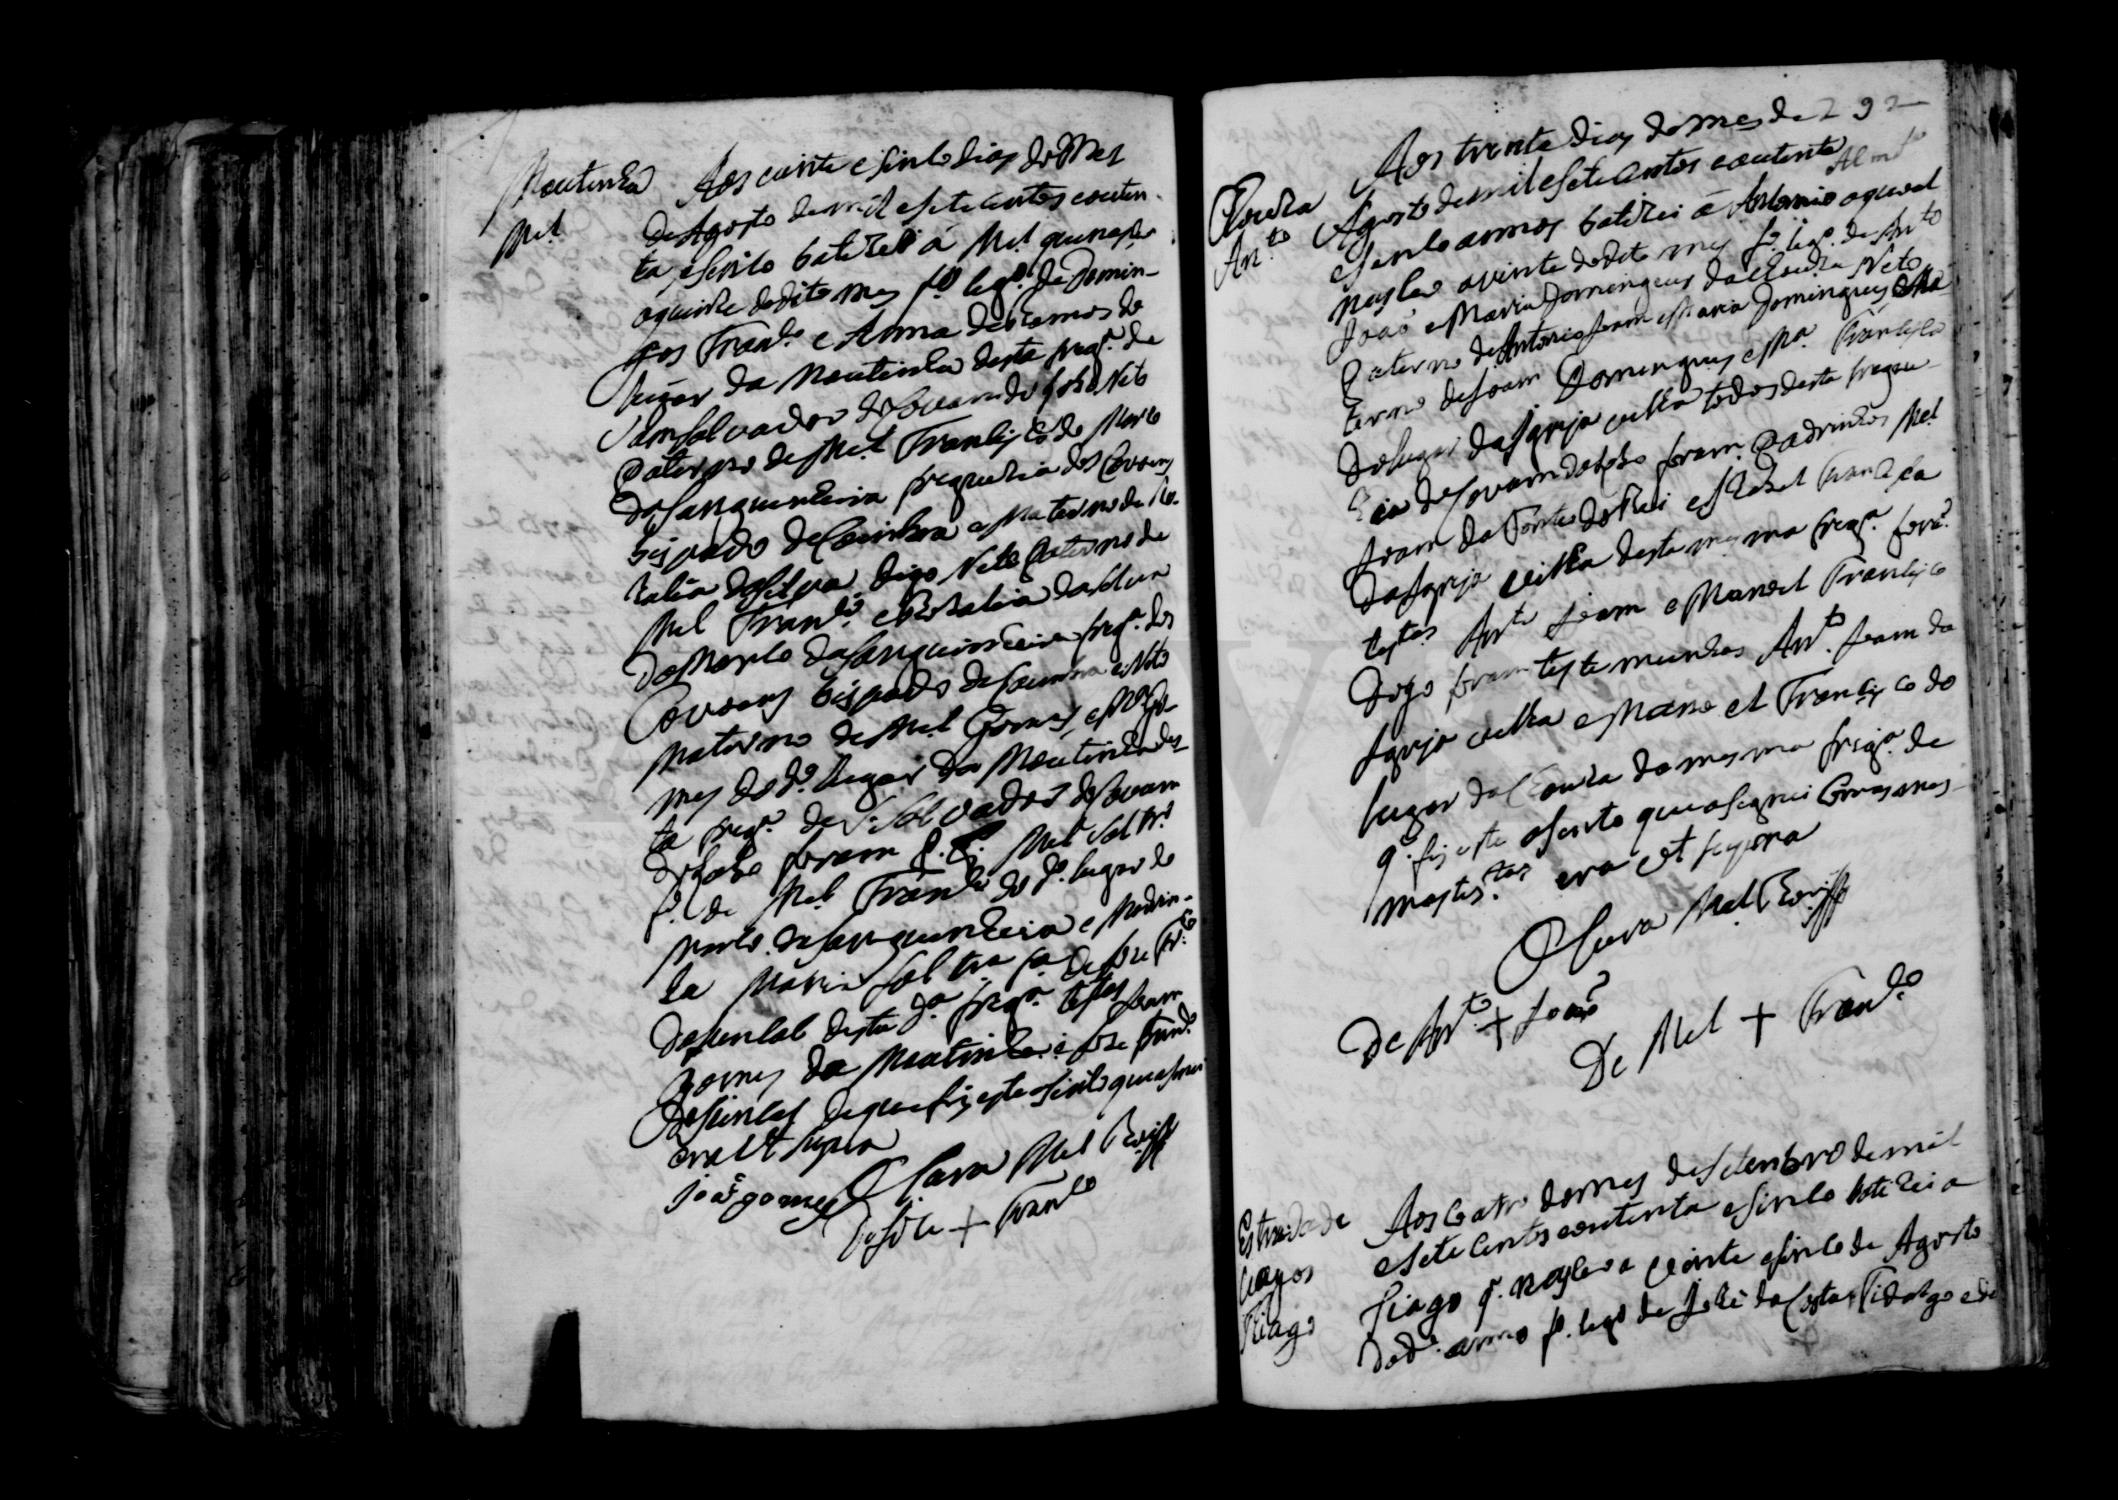 Moutinha
Mel
Aos vinte e sinco dias do Mes
de Agosto de mil e sete centos e outen-
ta e sinco batizei a Mel que nasceo
a quinze do dito mes fº legº de Domin-
gos Franco e Anna de Ramos do
lugar da Moutinha desta fregª de
Sam Salvador de Covam do Lobo Neto
Paterno de Mel Francisco do Marco
da Sanguinheira freguezia dos Covoens
bispado de Coimbra e Materno de Ro-
zalia da Silva digo Neto Paterno de
Mel Franco e Rozalia da Silva
do Marco da Sanguinheira fregª dos
Covoens bispado de Coimbra e Neto
Materno de Mel Gomes e Mª Go-
mes do dº lugar da Moutinha des-
ta fregª de S. Salvador de Covam
do Lobo foram P. P. Mel Soltrº
fº de Mel Franco do dº lugar do
Marco da Sanguinheira e Madrin-
ha Maria Soltra fª de Joze Frco
de Sinlal desta dª fregª testas Joam
Gomes da Moutinha e Joze Franco
de Sinlal de que fiz este asento que asinei
era Ut supra
O Cura Mel Roiz
Joaõ gomes
De Joze + Franco
292
Aos trinta dias do mes de
Rouza
Anto
Agosto de mil e sete centos e outenta
e sinco annos batizei a Antonio o qual
nasceo a vinte do dito mes fº legº de Anto
Joaõ e Maria Domingues da Rouza Neto
Paterno de Antonio Joam e Maria Domingues e Ma-
terno de Joam Domingues e Mª Francisca
do lugar da Igreja velha todos desta fregue-
zia de Covam do Lobo foram Padrinhos Mel
Joam da Fonte do Rei e Izabel Francisca
da Igreja velha desta mesma fregª foraõ
testas Anto Joam e Manoel Francisco
digo foram testemunhas Anto Joam da
Igreja velha e Manoel Francisco do
lugar da Rouza da mesma fregª de
q. fiz este asento que asignei Com as mes-
mas testas era Ut supra
O Cura Mel Roiz
De Anto + Joaõ
De Mel + Franco
Estrada de
Vagos
Tiago
Aos Coatro do mes de Setenbro de mil
e sete Centos e outenta e sinco batizei a
Tiago q. nasceo a vinte e sinco de Agosto
do dº anno fº legº de Joze da Costa Fidalgo e de